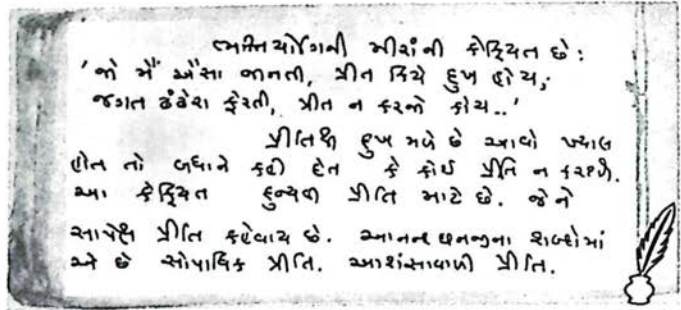 ભક્તિયોગિની મીરાંની કેફિયત છે:
'જો મૈં ઐસા જાનતી, પ્રીત કિયે દુખ હોય;
જગત ઢંઢેરા ફેરતી, પ્રીત ન કરજો કોય..'
પ્રીતિથી દુખ મળે છે આવો ખ્યાલ
હોત તો બધાને કહી દેત કે કોઈ પ્રીતિ ન કરશો.
આ કેફિયત દુન્યવી પ્રીતિ માટે છે. જેને
સાપેક્ષ પ્રીતિ કહેવાય છે. આનન્દઘનજીના શબ્દોમાં
એ છે સોપાધિક પ્રીતિ. આશંસાવાળી પ્રીતિ.